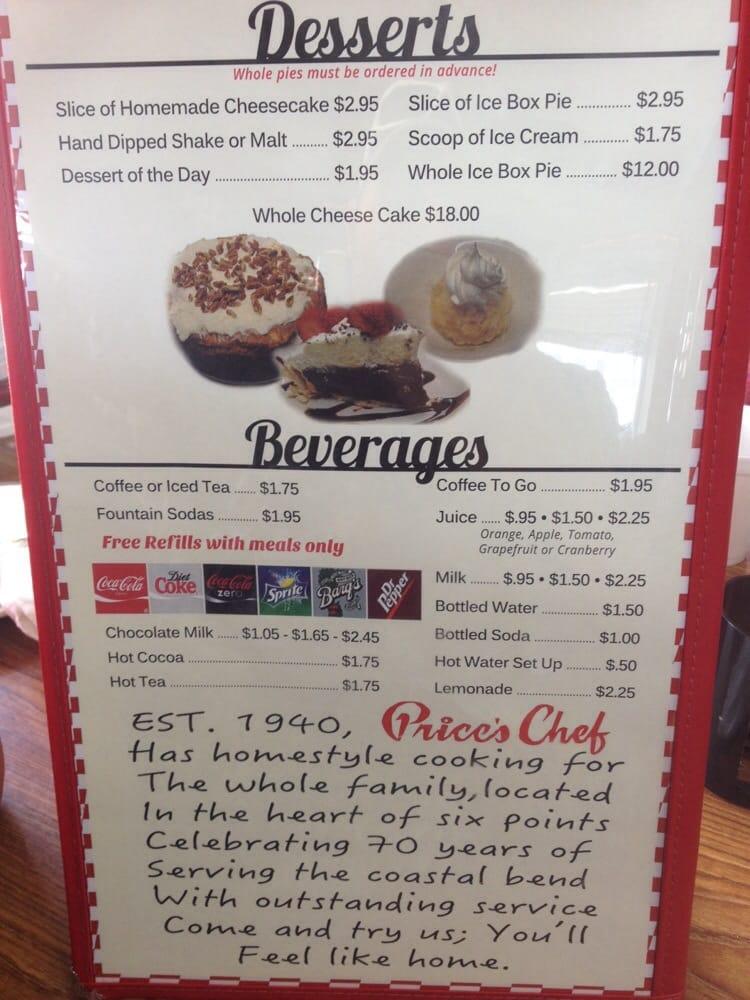 Desserts
Whole pies must be ordered in advance!
Slice of Homemade Cheesecake $2.95
Hand Dipped Shake or Malt .......... $2.95
Dessert of the Day ................................ $1.95
Slice of Ice Box Pie ............. $2.95
Scoop of Ice Cream ........... $1.75
Whole Ice Box Pie ............. $12.00
Whole Cheese Cake $18.00
Beverages
Coffee or Iced Tea ...... $1.75
Fountain Sodas ............ $1.95
Free Refills with meals only
Coca-Cola
Diet Coke
Coca-Cola zero
Sprite
Barq's
Dr Pepper
Chocolate Milk ...... $1.05 - $1.65 - $2.45
Hot Cocoa ............................................. $1.75
Hot Tea .................................................. $1.75
Coffee To Go ................... $1.95
Juice ...... $.95 • $1.50 • $2.25
Orange, Apple, Tomato,
Grapefruit or Cranberry
Milk ......... $.95 • $1.50 • $2.25
Bottled Water .................. $1.50
Bottled Soda ................... $1.00
Hot Water Set Up .......... $.50
Lemonade ....................... $2.25
EST. 1940, Price's Chef
Has homestyle cooking for
The whole family, located
In the heart of six points
Celebrating 70 years of
Serving the coastal bend
With outstanding service
Come and try us; You'll
Feel like home.